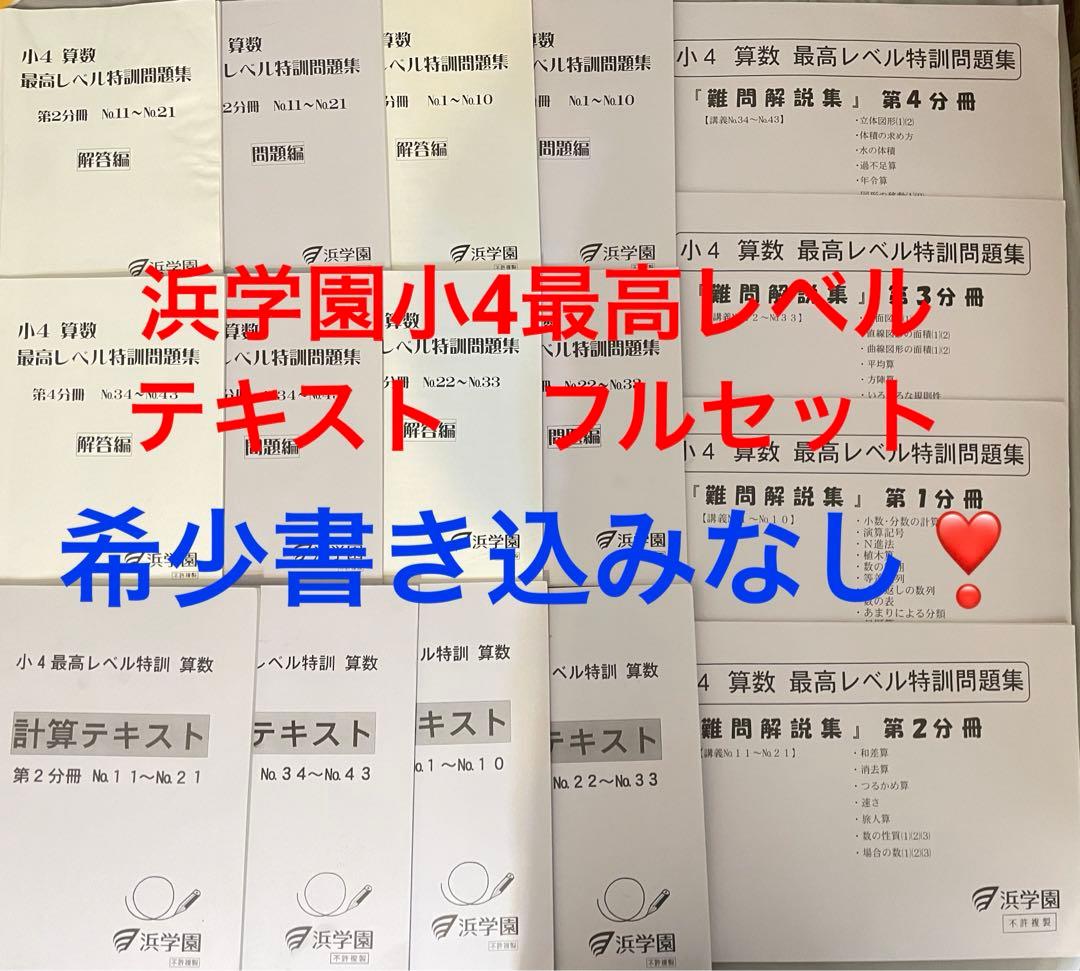 小4 算数
最高レベル特訓問題集
第2分冊 №11～№21
解答編
浜学園
算数
レベル特訓問題集
2分冊 №11～№21
問題編
浜学園
算数
ベル特訓問題集
分冊 №1～№10
解答編
浜学園
不許複製
算数
ベル特訓問題集
冊 №1～№10
問題編
浜学園
不許複製
小4 算数 最高レベル特訓問題集
『難問解説集』 第4分冊
【講義№34～№43】
・立体図形(1)(2)
・体積の求め方
・水の体積
・過不足算
・年令算
浜学園小4最高レベル
テキスト フルセット
希少書き込みなし❣️
小4 算数
最高レベル特訓問題集
第4分冊 №34～№43
解答編
浜学園
不許複製
算数
レベル特訓問題集
問題編
算数
ベル特訓問題集
分冊 №22～№33
解答編
浜学園
不許複製
ベル特訓問題集
冊 №22～№33
問題編
浜学園
不許複製
小4 算数 最高レベル特訓問題集
『難問解説集』 第3分冊
・直線図形の面積(1)(2)
・曲線図形の面積(1)(2)
・平均算
・方陣算
・いろいろな規則性
小4 算数 最高レベル特訓問題集
『難問解説集』 第1分冊
【講義№1～№10】
・小数・分数の計算
・演算記号
・N進法
・あまりによる分類
小4最高レベル特訓 算数
計算テキスト
第2分冊 №11～№21
浜学園
不許複製
レベル特訓 算数
テキスト
№34～№43
浜学園
不許複製
ル特訓 算数
キスト
№1～№10
浜学園
不許複製
ベル特訓 算数
テキスト
№22～№33
浜学園
不許複製
4 算数 最高レベル特訓問題集
難問解説集』 第2分冊
【講義№11～№21】
・和差算
・消去算
・つるかめ算
・速さ
・旅人算
・数の性質(1)(2)(3)
・場合の数(1)(2)(3)
浜学園
不許複製